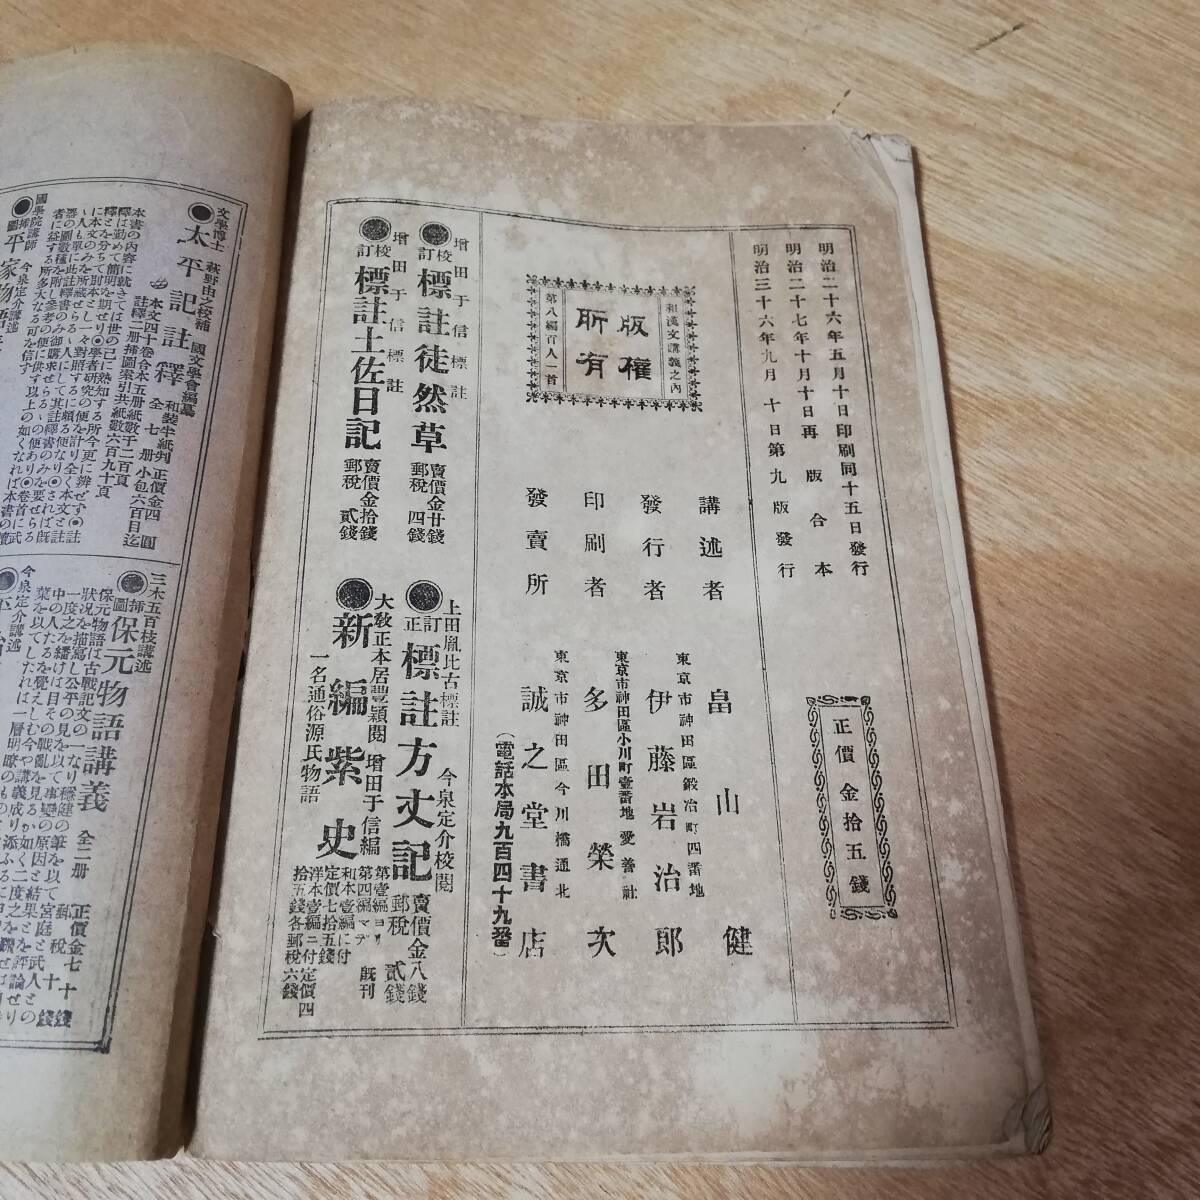 明治二十六年五月十日印刷同十五日發行
明治二十七年十月十日再版合本
明治三十六年九月十日第九版發行
正價金拾五錢
和漢文講義之內
版權
所有
第八編百人一首
講述者 畠山健
東京市神田區鍛冶町四番地
發行者 伊藤岩治郎
東京市神田區小川町壹番地愛善社
印刷者 多田榮次
東京市神田區今川橋通北
發賣所 誠之堂書店
(電話本局九百四十九番)
增田于信標註
校訂 標註徒然草 賣價金廿錢 郵稅四錢
增田于信標註
校訂 標註土佐日記 賣價金拾錢 郵稅貳錢
上田胤比古標註 今泉定介校閱
訂正 標註方丈記 賣價金八錢 郵稅貳錢
大敎正本居豐穎閱 增田于信編
新編紫史
一名通俗源氏物語
第壹編ヨリ第四編マデ既刊
和本壹編に付定價七十五錢
洋本壹編ニ付定價四拾五錢各郵稅六錢
文學博士 萩野由之校補 國文學會編纂
太平記註釋 和裝半紙判 全七册 正價金四圓 小包六百目迄
本文四十卷合本五册紙數千二百頁
註釋二册揷圖索引共紙數六百九十頁
本書の內容に就きては世の已に熟知する所今更に辨ぜず
國學院講師 今泉定介講述
揷圖 平家物語
三木五百枝講述
揷圖 保元物語講義 全二册 正價金七十錢 郵稅十錢
保元物語は古戰記文の一なり
今泉定介講述